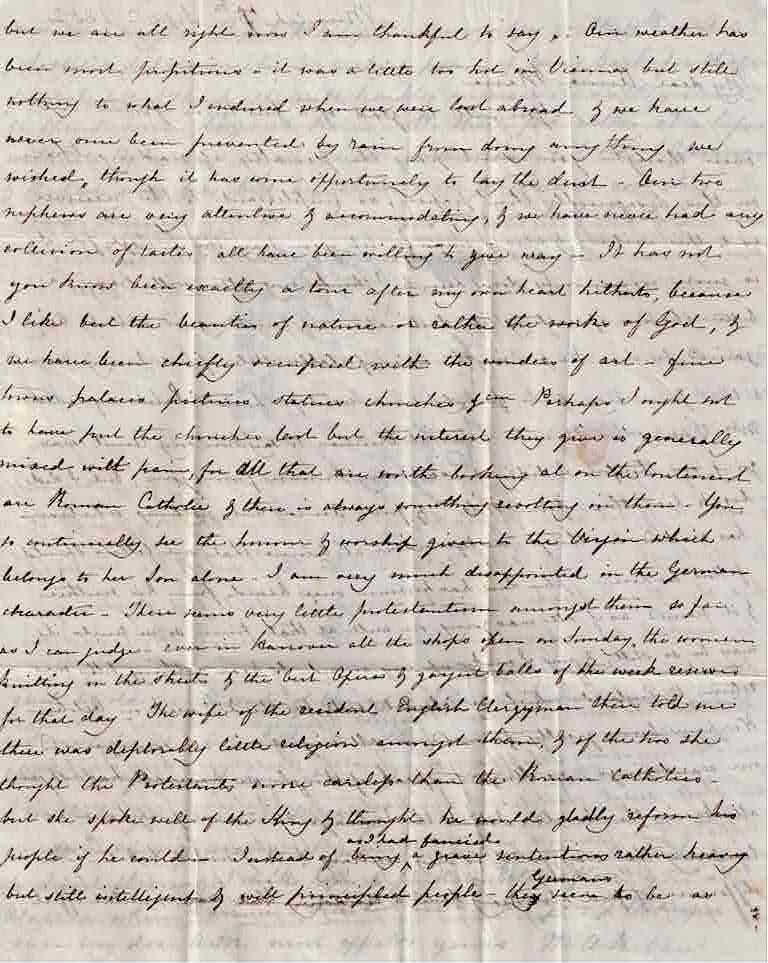 but we are all right now I am thankful to say. Our weather has
been most propitious - it was a little too hot in Vienna but still
nothing to what I endured when we were last abroad & we have
never once been prevented by rain from doing any thing we
wished, though it has come opportunely to lay the dust - Our two
nephews are very attentive & accommodating, & we have never had any
collision of tastes all have been willing to give way - It has not
you know been exactly a tour after my own heart hitherto, because
I like best the beauties of nature or rather the works of God, &
we have been chiefly occupied with the wonders of art - fine
towns palaces pictures statues churches &ca Perhaps I ought not
to have put the churches last but the interest they give is generally
mixed with pain, for all that are worth looking at on the Continent
are Roman Catholic & there is always something revolting in them - You
so continually see the honour & worship given to the Virgin which
belongs to her Son alone - I am very much disappointed in the German
character - There seems very little protestantism amongst them so far
as I can judge - even in Hanover all the shops open on Sunday, the women
knitting in the streets & the best Operas & gayest balls of the week reserved
for that day - The wife of the resident English Clergyman there told me
there was deplorably little religion amongst them, & of the two she
thought the Protestants more careless than the Roman Catholics -
but she spoke well of the King & thought he would gladly reform his
as I had fancied
people if he could - Instead of being ^ a grave sententious rather heavy
Germans
but still intelligent & well principled people - they seem to be as